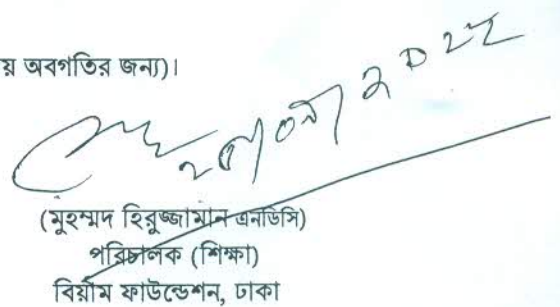 য় অবগতির জন্য)।
(মুহম্মদ হিরুজ্জামান এনডিসি)
পরিচালক (শিক্ষা)
বিয়াম ফাউন্ডেশন, ঢাকা